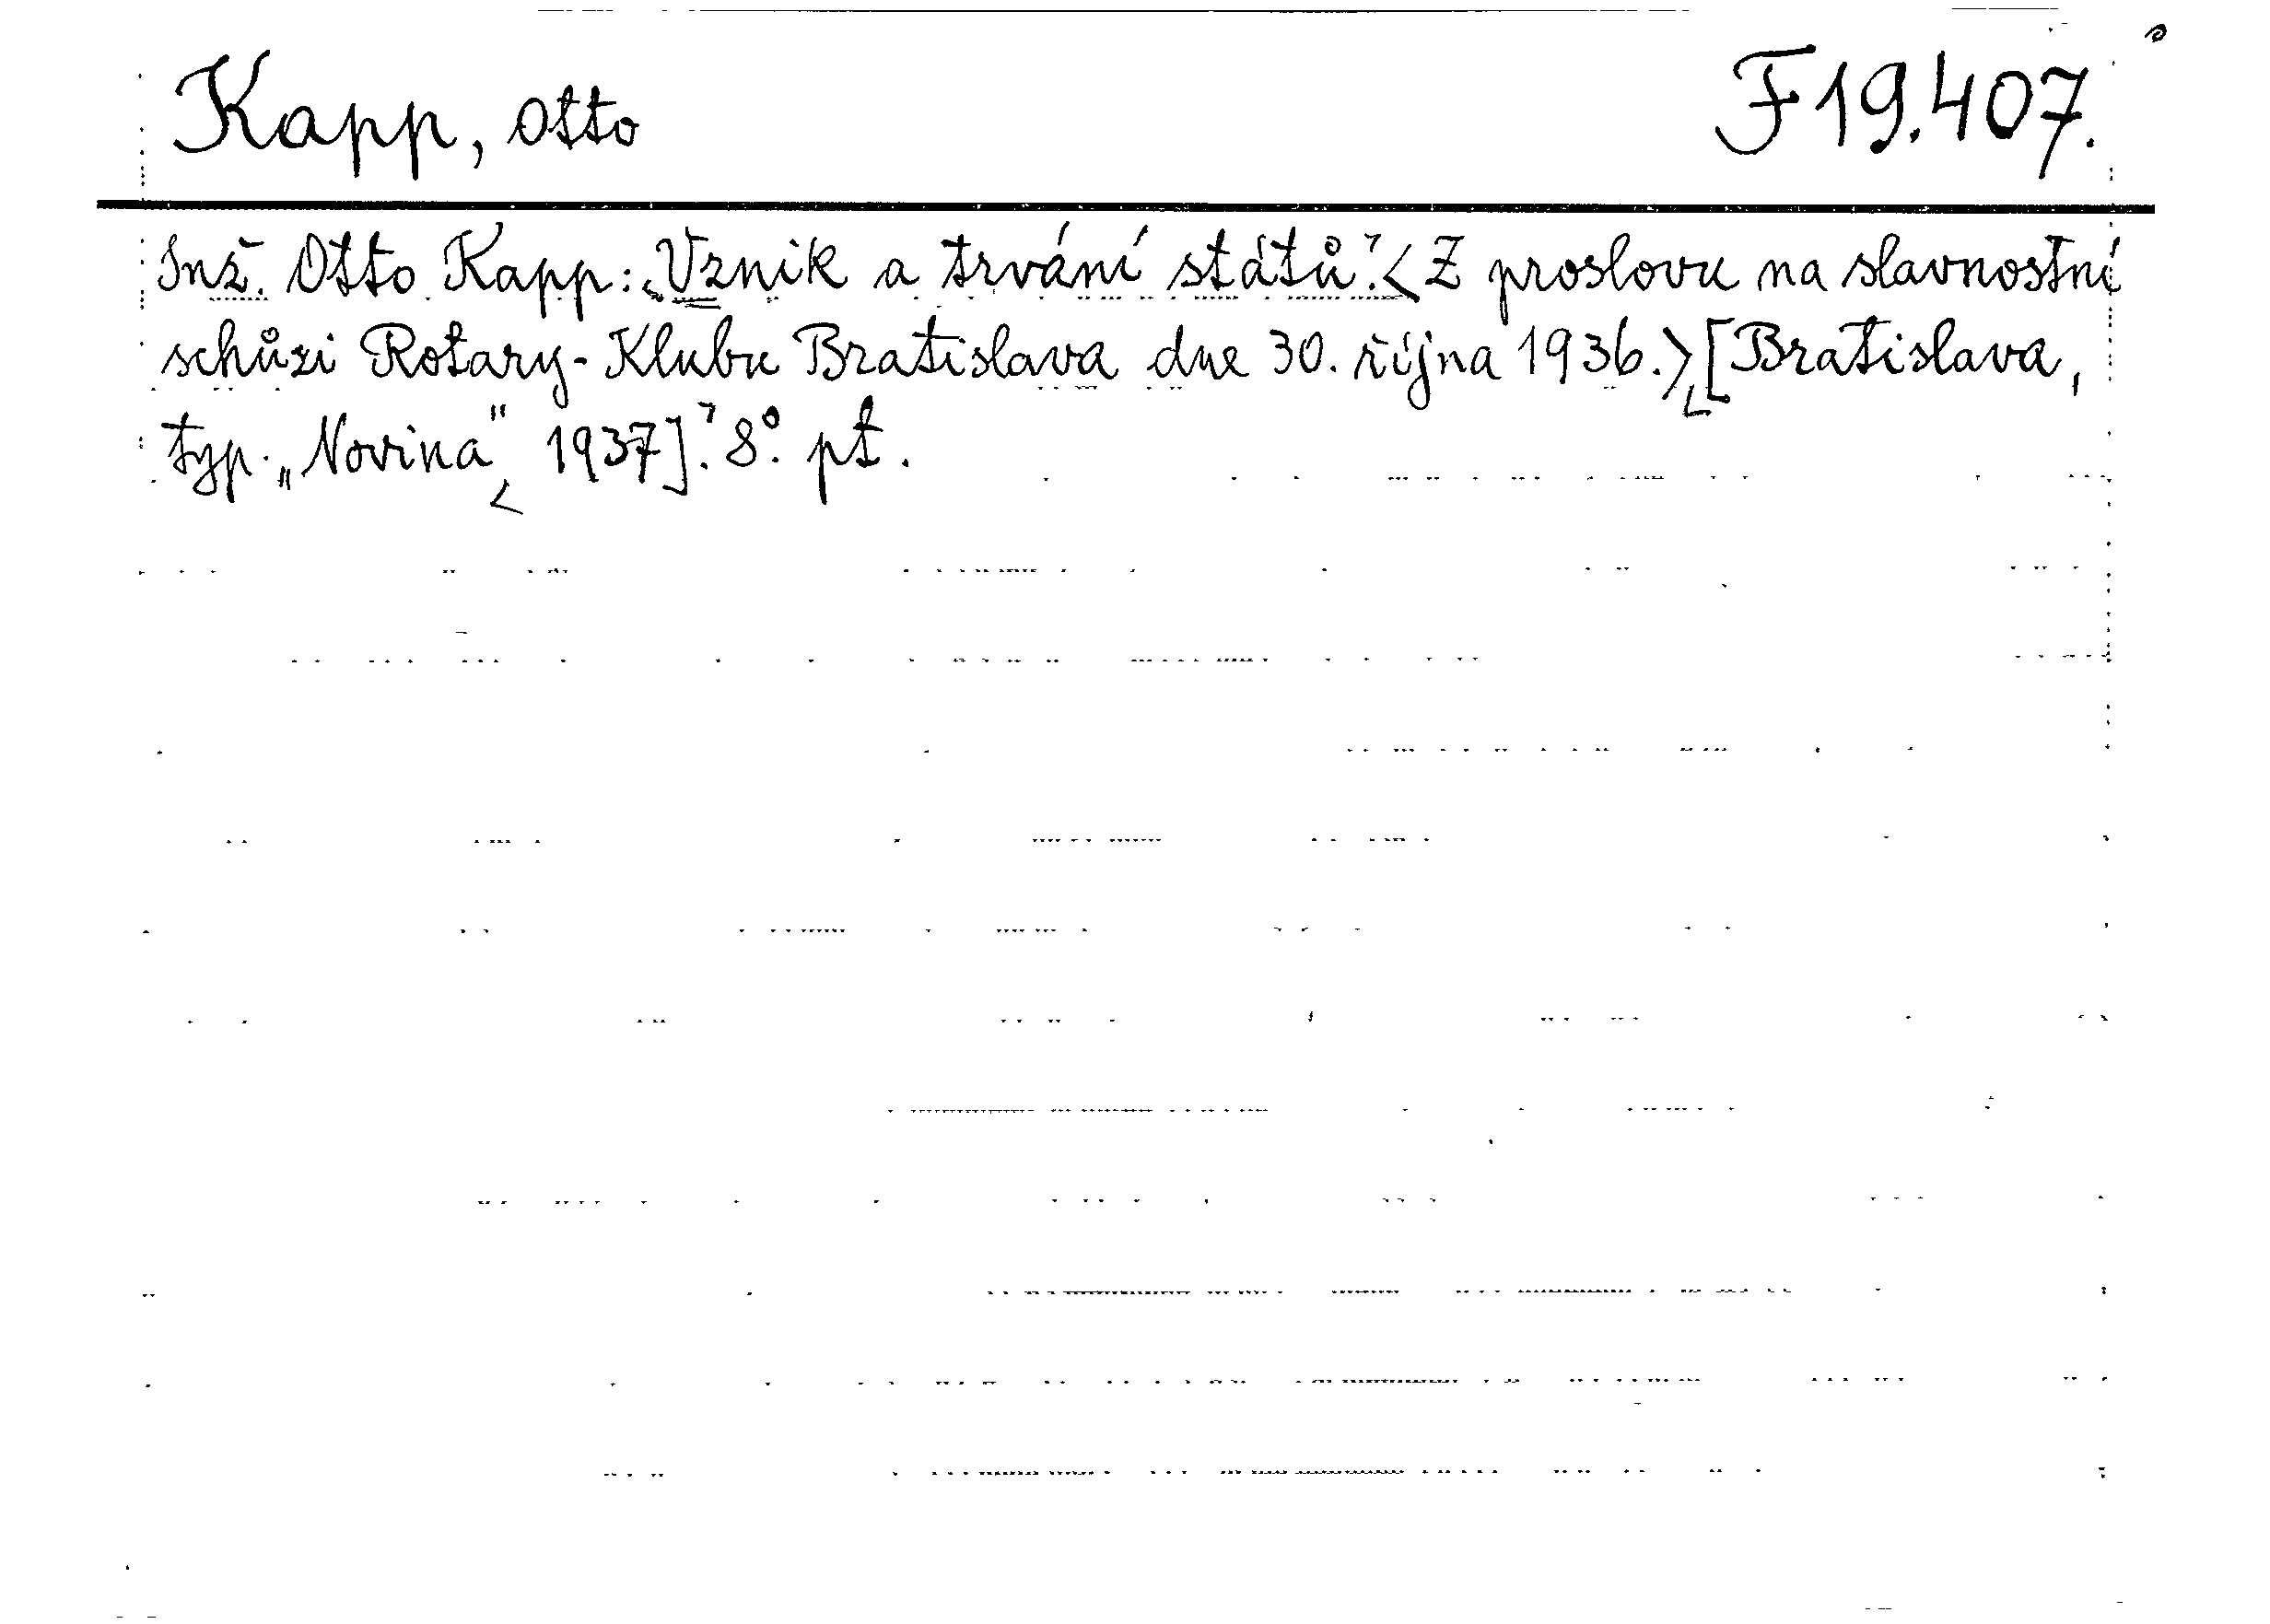 Kapp, Otto F 19.407.
Inž. Otto Kapp: Vznik a trvání států. <Z proslovu na slavnostní
schůzi Rotary-Klubu Bratislava dne 30. října 1936.> [Bratislava,
typ. „Novina" 1937]. 8°. pt.